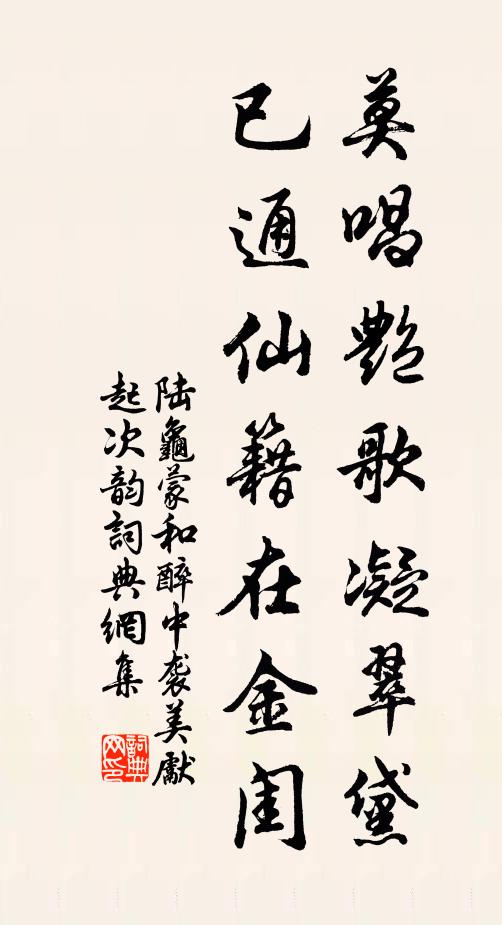 莫唱艷歌凝翠黛
已通仙籍在金闺
陆龜蒙和醉中袭美獻
起次韵詞典網集
詞典
网印